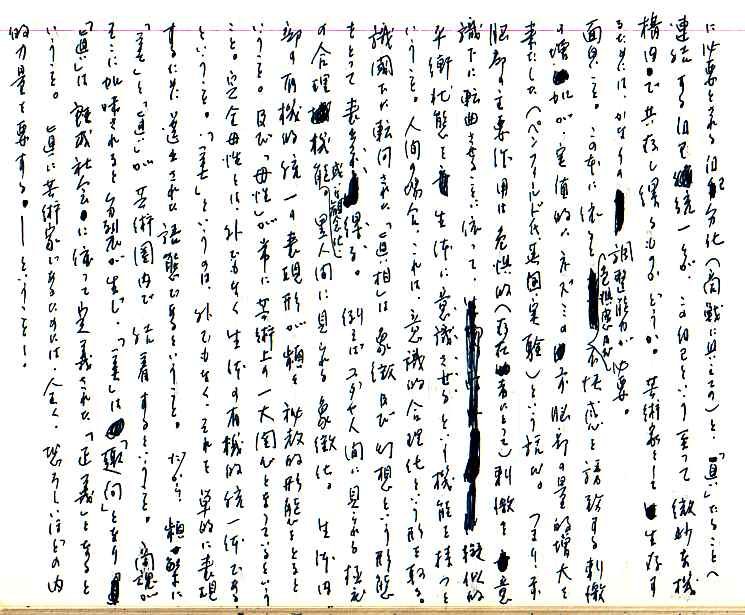 に必要とされる自己分化(商戦に具えての)と、「真」たることへ
連結する自己統一が、この自己という至って微妙な機
構内で共存し得るものかどうか。芸術家として生存す
るためには、かなりの調整能力が必要。
面白いこと。この本に依ると、危惧感及不快感を誘発する刺激
の増加が、実値的にネズミの前脳部の量的増大を
来たした(ペンフィールド氏英国・実験)という説。つまり、前
脳部の主要作用は危惧的(存在者にとって)刺激を意
識下に転曲させることに依って、擬似的
平衡状態を生体に意識させるという機能を持つと
いうこと。人間の場合、これは、意識的合理化という形を取る。
識閾下に転向された「真相」は象徴及び幻想という形態
をとって表われ得る。例えばユダヤ人間に見られる極端
の合理機能。或は観念化 黒人間に見られる象徴化。生体内
部の有機的統一の表現形が頻々秘教的形態をとると
いうこと。及び「母性」が常に芸術上の一大関心となっているという
こと。完全母性とは外でもなく生体の有機的統一体である
ということ。「美」というのは、外でもなく、それを単的に表現
するために選出された語態であるということ。だから頻繁に
「美」と「真」が芸術圏内で結着するということ。商魂が
そこに加味されると分裂が生じ、「美」は「趣向」となり
「真」は既成社会に依って定義された「正義」となると
いうこと。真に芸術家であるためには、全く、恐ろしいほどの内
的力量を要する。——ということ!。